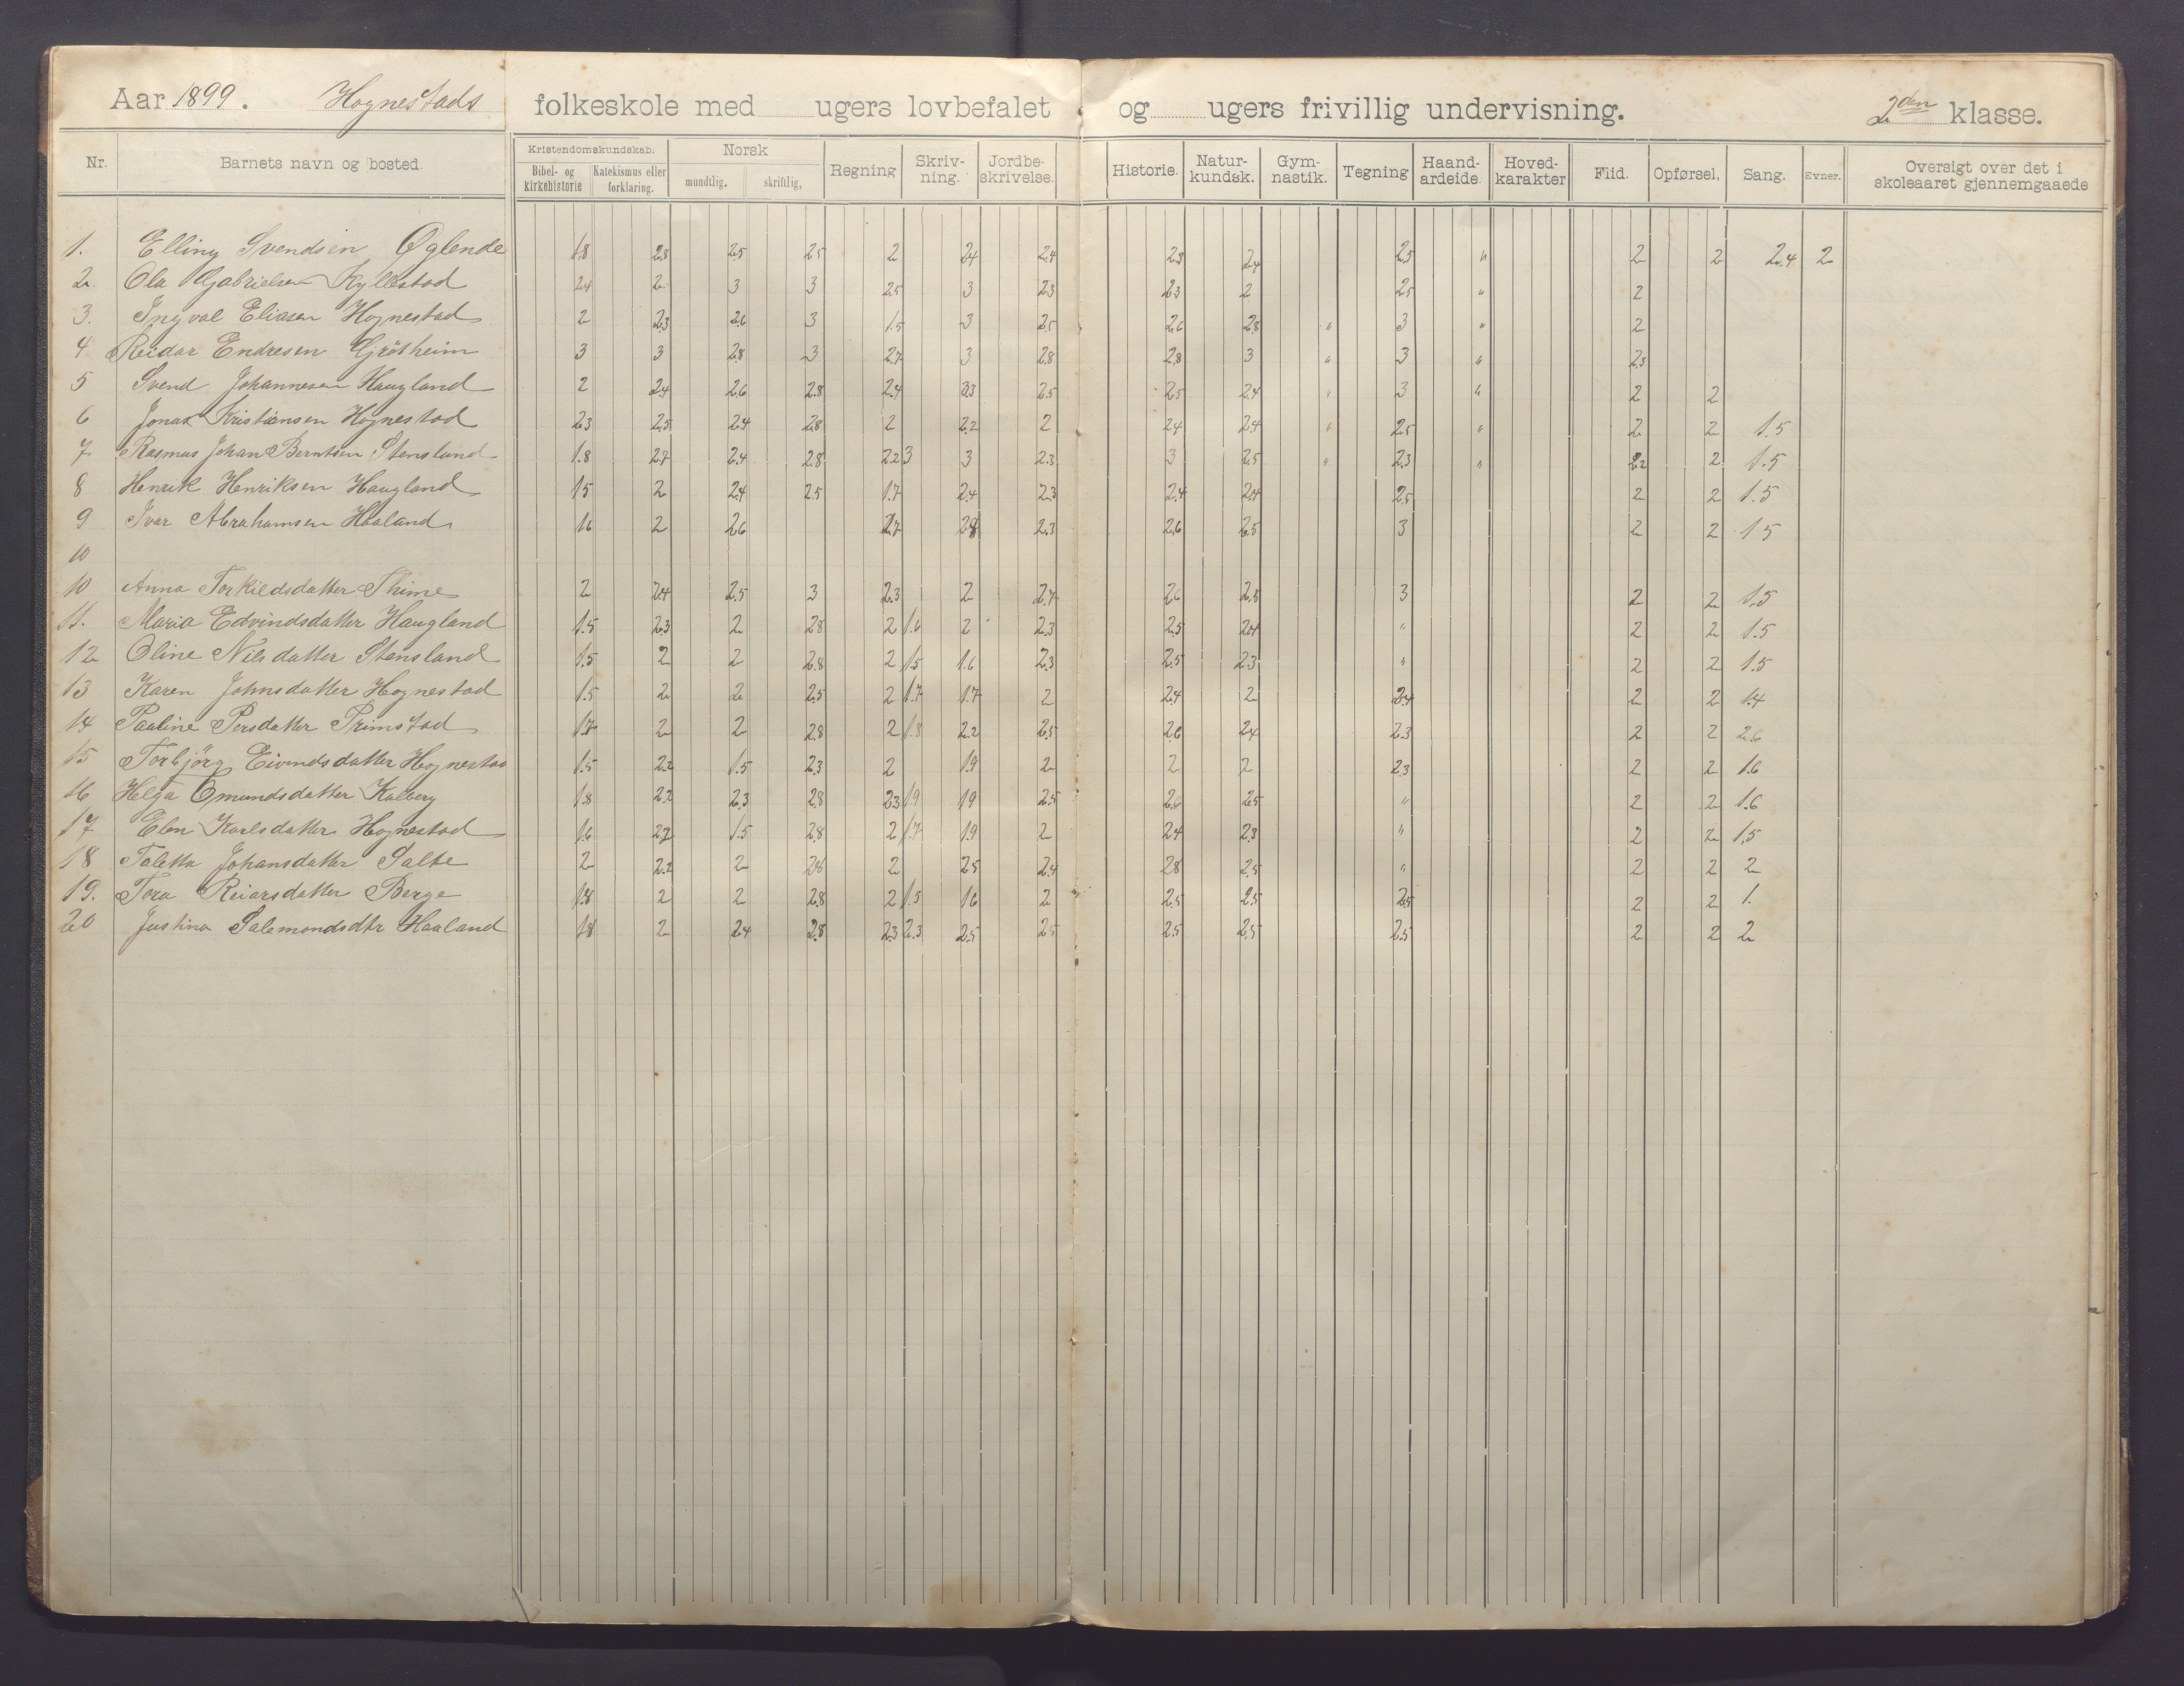 Aar 1899. Hognestads folkeskole med ugers lovbefalet og ugers frivillig undervisning. 2den klasse.
Nr. Barnets navn og bosted. Kristendomskundskab. Bibel- og kirkehistorie Katekismus eller forklaring. Norsk mundtlig. skriftlig, Regning Skriv-ning. Jordbe-skrivelse. Historie. Natur-kundsk. Gym-nastik. Tegning Haand-arbeide. Hoved-karakter Flid. Opførsel, Sang. Evner. Oversigt over det i skoleaaret gjennemgaaede
1. Elling Svendsen Øglende 1.8 2.3 2.5 2.5 2 2.4 2.4 2.3 2.4 2.5 " 2 2 2.4 2
2. Ola Gabrielsen Kyllestad 2.4 2 3 3 2.5 3 2.3 2.3 2 2.5 " 2
3. Ingval Eliasen Hognestad 2 2.3 2.6 3 1.5 3 2.5 2.6 2.8 " 3 " 2
4 Reidar Endresen Grösheim 3 3 2.8 3 2.7 3 2.8 2.8 3 " 3 " 2.3
5 Svend Johannesen Haugland 2 2.4 2.6 2.8 2.4 2.3 2.5 2.5 2.4 " 3 " 2 2
6 Jonas Kristiansen Hognestad 2.3 2.5 2.4 2.8 2 2.2 2 2.4 2.4 " 2.5 " 2 2 1.5
7 Rasmus Johan Berntsen Stensland 1.8 2.7 2.4 2.8 2.2 3 3 2.3 3 2.5 " 2.3 " 2.2 2 1.5
8 Henrik Henriksen Haugland 1.5 2 2.4 2.5 1.7 2.4 2.3 2.4 2.4 2.5 2 2 1.5
9 Ivar Abrahamsen Haaland 1.6 2 2.6 2.7 2.8 2.3 2.6 2.5 3 2 2 1.5
10
10 Anna Torkildsdatter Thime 2 2.4 2.5 3 2.3 2 2.7 2.6 2.5 3 2 2 1.5
11. Maria Edvindsdatter Haugland 1.5 2.3 2 2.8 2 1.6 2 2.3 2.5 2.4 " 2 2 1.5
12 Oline Nilsdatter Stensland 1.5 2 2 2.8 2 1.5 1.6 2.3 2.5 2.3 " 2 2 1.5
13 Karen Johnsdatter Hognestad 1.5 2 2 2.5 2 1.7 1.7 2 2.4 2 2.4 2 2 1.4
14 Pauline Persdatter Primstad 1.7 2 2 2.8 2 1.8 2.2 2.5 2.6 2.4 2.3 2 2 2.6
15 Torbjörg Eivindsdatter Hognestad 1.5 2.2 1.5 2.3 2 1.9 2 2 2 2.3 2 2 1.6
16 Helga Omundsdatter Kalberg 1.8 2.2 2.3 2.8 2.3 1.9 1.9 2.5 2.6 2.5 " 2 2 1.6
17 Elen Karlsdatter Hognestad 1.6 2.2 1.5 2.8 2 1.7 1.9 2 2.4 2.3 " 2 2 1.5
18 Taletta Johansdatter Salte 2 2.2 2 2.8 2 2.5 2.4 2.8 2.5 " 2 2 2
19. Tora Reiarsdatter Berge 1.8 2 2 2.8 2 1.5 1.6 2 2.5 2.5 2.5 2 2 1.
20 Justina Salemondsdtr Haaland 1.8 2 2.4 2.8 2.3 2.3 2.5 2.5 2.5 2.5 2.5 2 2 2